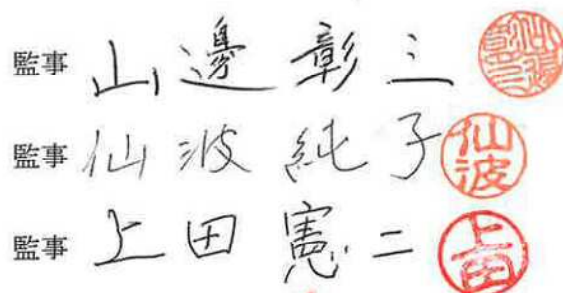 監事 山邊彰三
監事 仙波純子 仙波
監事 上田憲二 上田